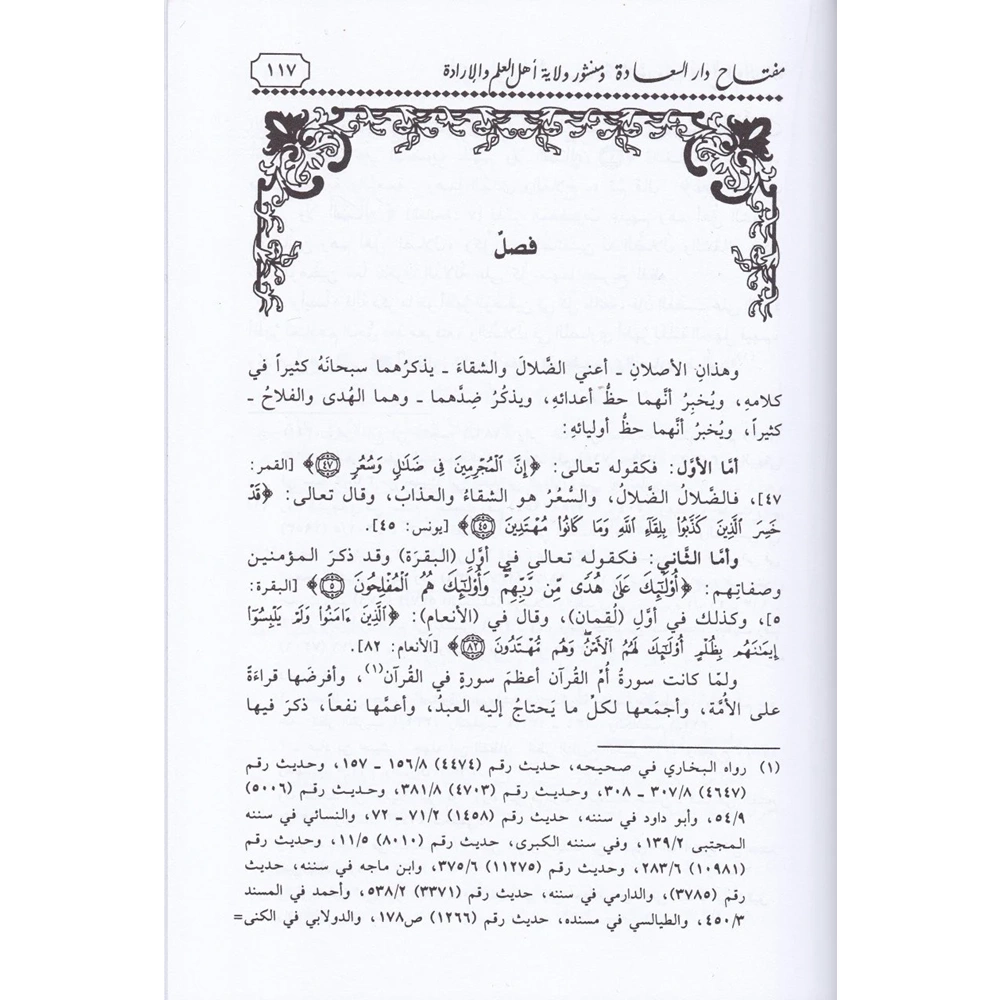 مفتاح دار السعادة ومنشور ولاية أهل العلم والإرادة
١١٧
فصلٌ
وهذانِ الأصلانِ ـ أعني الضَّلالَ والشقاءَ ـ يذكرُهما سبحانَهُ كثيراً في
كلامهِ، ويُخبِرُ أنَّهما حظُّ أعدائهِ، ويذكُرُ ضِدَّهما ـ وهما الهُدى والفلاحُ ـ
كثيراً، ويُخبرُ أنَّهما حظُّ أوليائهِ:
أمَّا الأوَّل: فكقوله تعالى: ﴿إِنَّ ٱلْمُجْرِمِينَ فِى ضَلَٰلٍ وَسُعُرٍ ٤٧﴾ [القمر:
٤٧]، فالضَّلالُ الضَّلالُ، والسُّعُرُ هو الشقاءُ والعذابُ، وقال تعالى: ﴿قَدْ
خَسِرَ ٱلَّذِينَ كَذَّبُوا۟ بِلِقَآءِ ٱللَّهِ وَمَا كَانُوا۟ مُهْتَدِينَ ٤٥﴾ [يونس: ٤٥].
وأمَّا الثَّاني: فكقوله تعالى في أوَّلِ (البقرَة) وقد ذكرَ المؤمنين
وصفاتِهم: ﴿أُو۟لَٰٓئِكَ عَلَىٰ هُدًى مِّن رَّبِّهِمْ وَأُو۟لَٰٓئِكَ هُمُ ٱلْمُفْلِحُونَ ٥﴾ [البقرة:
٥]، وكذلك في أوَّلِ (لُقمان)، وقال في (الأنعام): ﴿ٱلَّذِينَ ءَامَنُوا۟ وَلَمْ يَلْبِسُوٓا۟
إِيمَٰنَهُم بِظُلْمٍ أُو۟لَٰٓئِكَ لَهُمُ ٱلْأَمْنُ وَهُم مُّهْتَدُونَ ٨٢﴾ [الأنعام: ٨٢].
ولمَّا كانت سورةُ أُمِّ القُرآن أعظمَ سورةٍ في القُرآن(١)، وأفرضَها قراءَةً
على الأُمَّة، وأجمَعها لكلِّ ما يَحتاجُ إليه العبدُ، وأعمَّها نفعاً، ذكرَ فيها
(١) رواه البخاري في صحيحه، حديث رقم (٤٤٧٤) ١٥٦/٨ ـ ١٥٧، وحديث رقم
(٤٦٤٧) ٣٠٧/٨ ـ ٣٠٨، وحديث رقم (٤٧٠٣) ٣٨١/٨، وحديث رقم (٥٠٠٦)
٥٤/٩، وأبو داود في سننه، حديث رقم (١٤٥٨) ٧١/٢ ـ ٧٢، والنسائي في سننه
المجتبى ١٣٩/٢، وفي سننه الكبرى، حديث رقم (٨٠١٠) ١١/٥، وحديث رقم
(١٠٩٨١) ٢٨٣/٦، وحديث رقم (١١٢٧٥) ٣٧٥/٦، وابن ماجه في سننه، حديث
رقم (٣٧٨٥)، والدارمي في سننه، حديث رقم (٣٣٧١) ٥٣٨/٢، وأحمد في المسند
٤٥٠/٣، والطيالسي في مسنده، حديث رقم (١٢٦٦) ص١٧٨، والدولابي في الكنى=